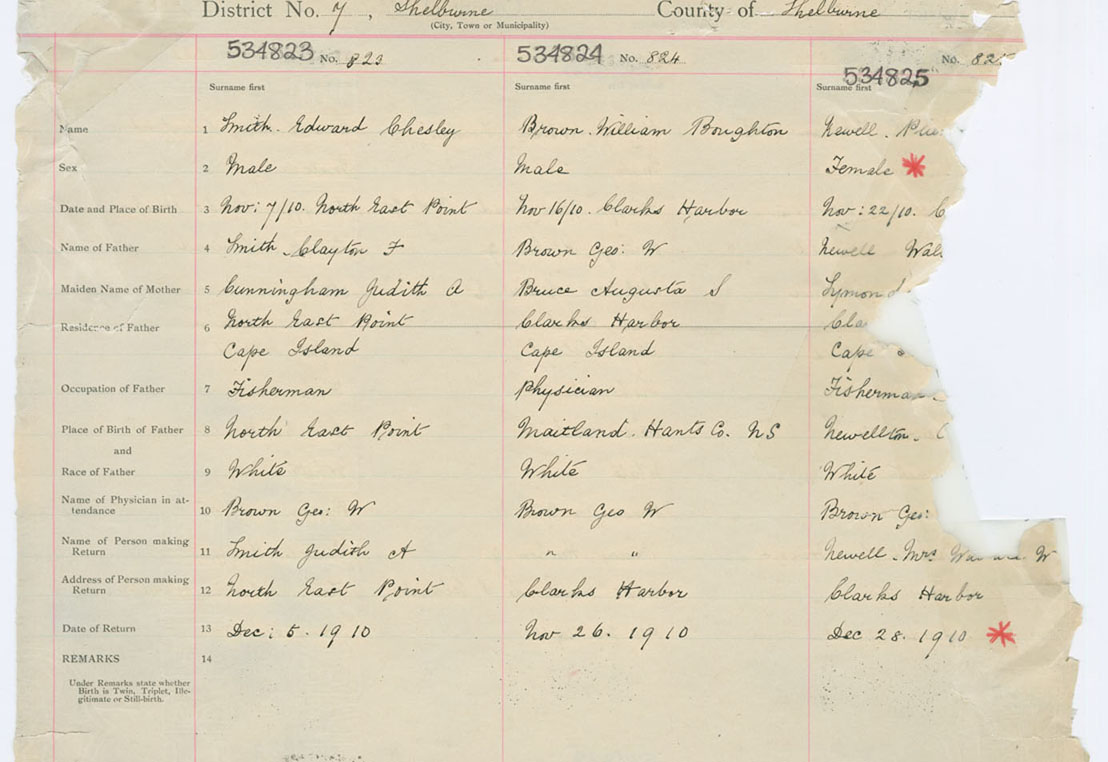 District No. 7, Shelburne County of Shelburne
(City, Town or Municipality)
534823 No. 823 534824 No. 824 534825 No. 825
Surname first Surname first Surname first
Name 1 Smith. Edward Chesley Brown. William Boughton Newell.
Sex 2 Male Male Female *
Date and Place of Birth 3 Nov: 7/10. North East Point Nov 16/10. Clarks Harbor Nov: 22/10. C
Name of Father 4 Smith. Clayton F Brown Geo: W Newell
Maiden Name of Mother 5 Cunningham Judith A Bruce Augusta S
Residence of Father 6 North East Point Clarks Harbor Cla
Cape Island Cape Island Cape
Occupation of Father 7 Fisherman Physician Fisherman
Place of Birth of Father 8 North East Point Maitland. Hants Co. NS Newellton.
and
Race of Father 9 White White White
Name of Physician in at-
tendance 10 Brown Geo: W Brown Geo W Brown Geo:
Name of Person making
Return 11 Smith Judith A " " Newell. Mrs W
Address of Person making
Return 12 North East Point Clarks Harbor Clarks Harbor
Date of Return 13 Dec: 5. 1910 Nov 26. 1910 Dec 28. 1910 *
REMARKS 14
Under Remarks state whether
Birth is Twin, Triplet, Ille-
gitimate or Still-birth.